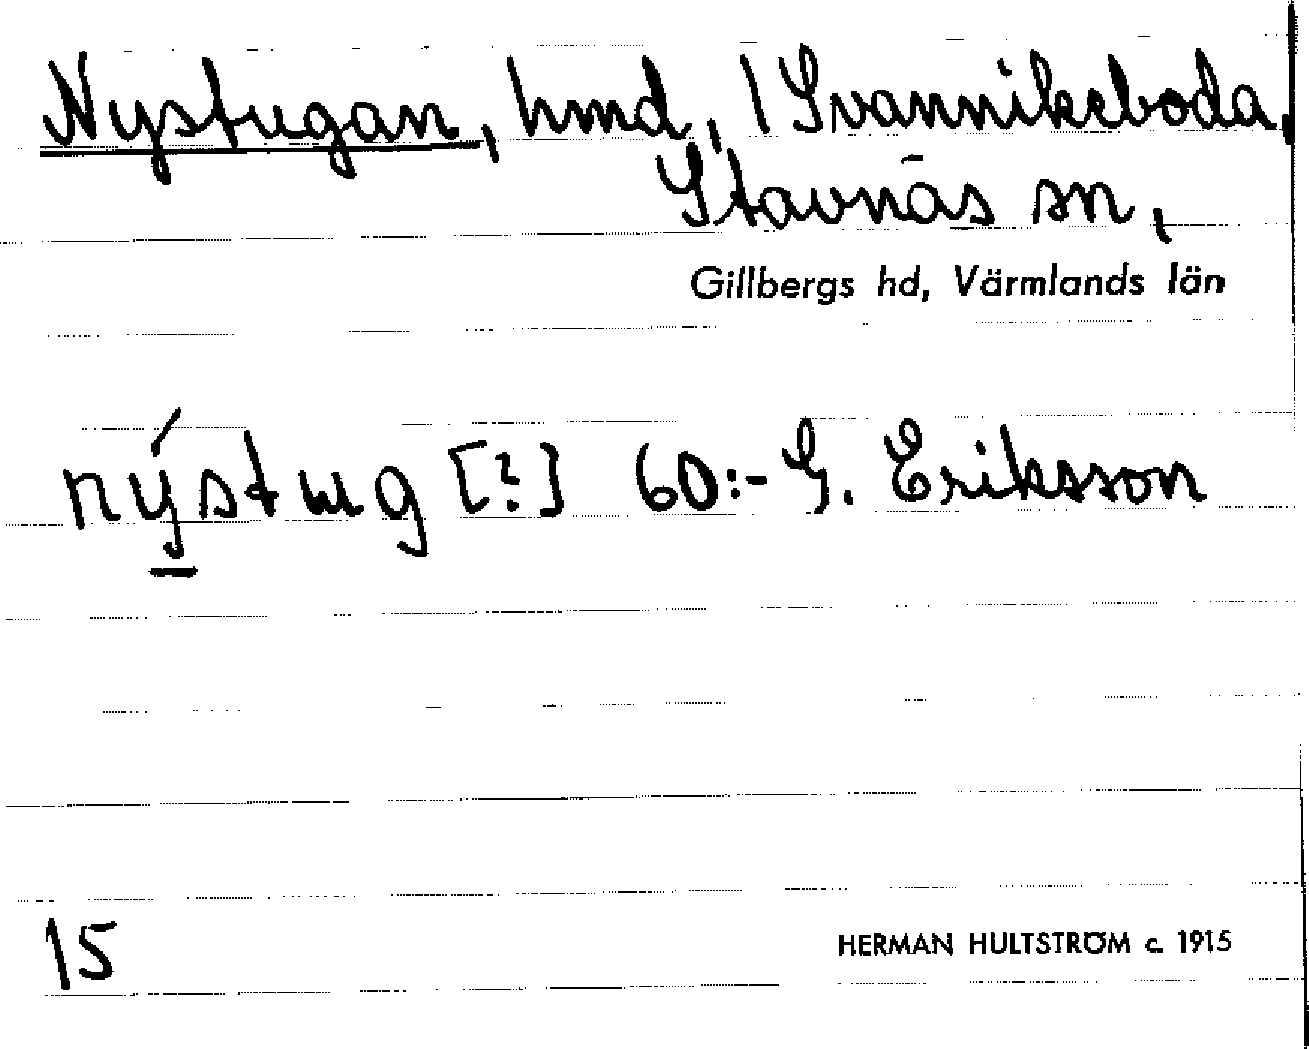 Nystugan, hmd, 1 Svannikeboda,
Stavnäs sn,
Gillbergs hd, Värmlands län
nýstug [?] 60:- G. Eriksson
15
HERMAN HULTSTRÖM c. 1915